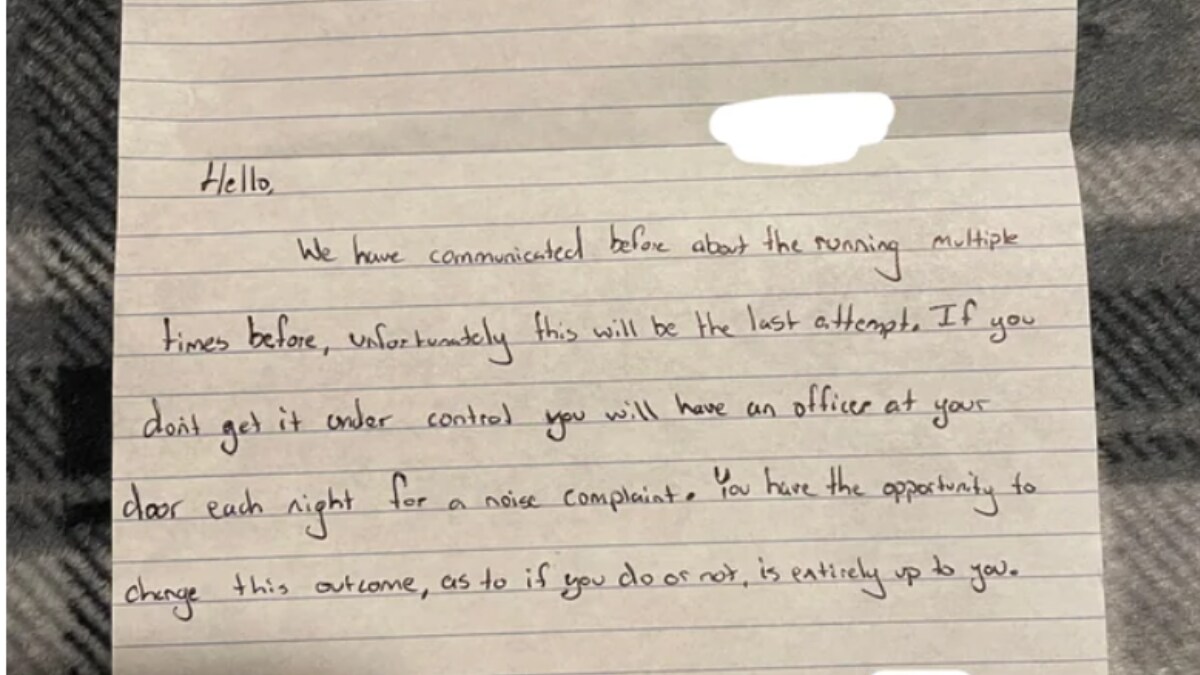 Hello,
We have communicated before about the running multiple
times before, unfortunately this will be the last attempt. If you
don't get it under control you will have an officer at your
door each night for a noise complaint. You have the opportunity to
change this outcome, as to if you do or not, is entirely up to you.